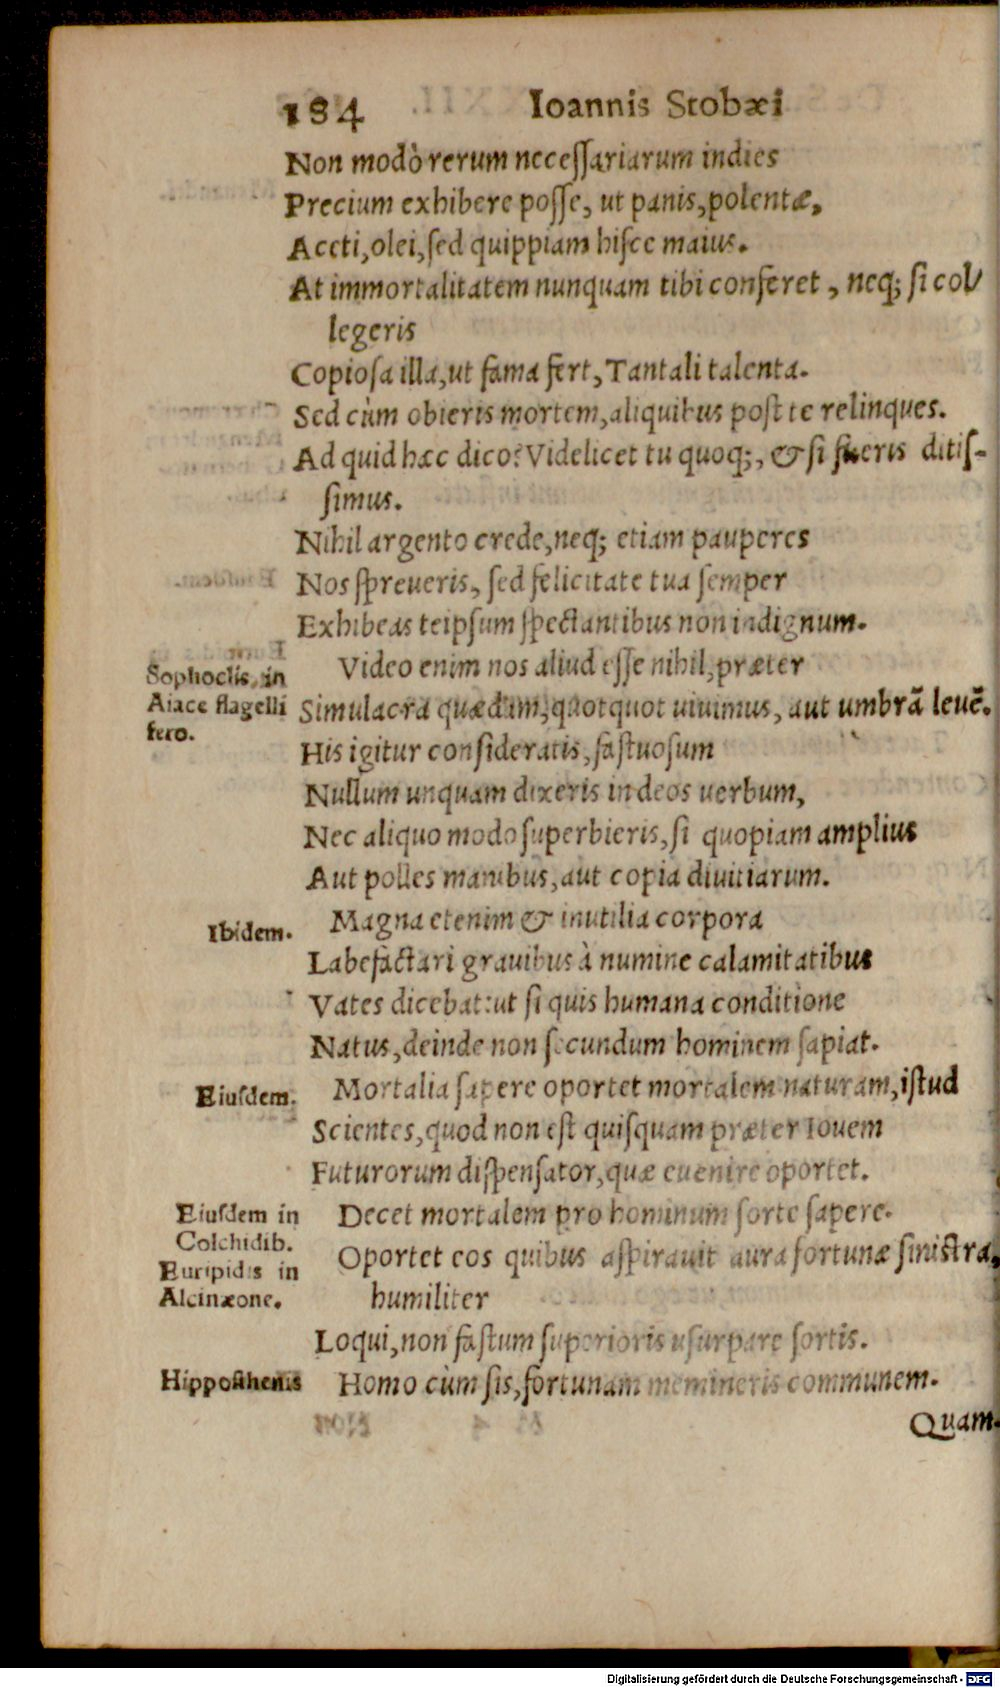 184 Ioannis Stobæi
Non modò rerum necessariarum indies
Precium exhibere posse, ut panis, polentæ,
Aceti, olei, sed quippiam hisce maius.
At immortalitatem nunquam tibi conferet, neq; si col/
legeris
Copiosa illa, ut fama fert, Tantali talenta.
Sed cùm obieris mortem, aliquibus post te relinques.
Ad quid hæc dico? Videlicet tu quoq;, & si fueris ditiſ-
simus.
Nihil argento crede, neq; etiam pauperes
Nos spreueris, sed felicitate tua semper
Exhibeas teipsum spectantibus non indignum.
Sophoclis, in
Aiace flagelli
fero.
Video enim nos aliud esse nihil, præter
Simulacra quædam, quotquot uiuimus, aut umbrã leuẽ.
His igitur consideratis, fastuosum
Nullum unquam dixeris in deos uerbum,
Nec aliquo modo superbieris, si quopiam amplius
Aut polles manibus, aut copia diuitiarum.
Ibidem.
Magna etenim & inutilia corpora
Labefactari grauibus à numine calamitatibus
Vates dicebat: ut si quis humana conditione
Natus, deinde non secundum hominem sapiat.
Eiusdem.
Mortalia sapere oportet mortalem naturam, istud
Scientes, quod non est quisquam præter Iouem
Futurorum dispensator, quæ euenire oportet.
Eiusdem in
Colchidib.
Decet mortalem pro hominum sorte sapere.
Euripidis in
Alcinæone.
Oportet eos quibus aspirauit aura fortunæ sinistra,
humiliter
Loqui, non fastum superioris usurpare sortis.
Hipposthenis
Homo cùm sis, fortunam memineris communem.
Quam-
Digitalisierung gefördert durch die Deutsche Forschungsgemeinschaft - DFG